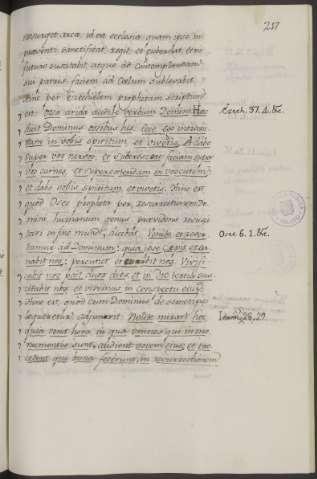 217
resurget caro, id est ecclesia quam ipse in
praesenti sanctificat, regit et
futuro atque ut contemplantem
suae faciem ad Coelum sublevabit.
Hinc per Ezechielem prophetam scriptum
est: Ossa arida audite verbum Domini Haec
dicit Dominus ossibus his. Ecce ego intromit-
tam in vobis spiritum et vivetis. Et dabo
super vos nervos, et succrescere faciam super
vos carnes, et superextendam in vos cutem,
et dabo vobis spiritum, et vivetis. Hinc est
quod Osee propheta per resurrectionem Do-
mini humanum genus praevidens resusci-
tari in fine mundi, dicebat. Venite et rever-
tamur ad Dominum: quia ipse cepit et sa-
nabit nos: percutiet et curabit nos. Vivifi-
cabit nos post duos dies, et in die tertia sus-
citabit nos et vivemus in conspectu ejus.
Hinc est, quod cum Dominus de
loqueretur adjunxit: Nolite mirari hoc,
quia venit hora in qua omnes qui in mo-
numentis sunt, audient vocem ejus, et pro-
cedent qui bona fecerunt in resurrectionem
Ezech. 37. 4. &c.
Osee 6. 1. &c.
Ioann. 28, 29.